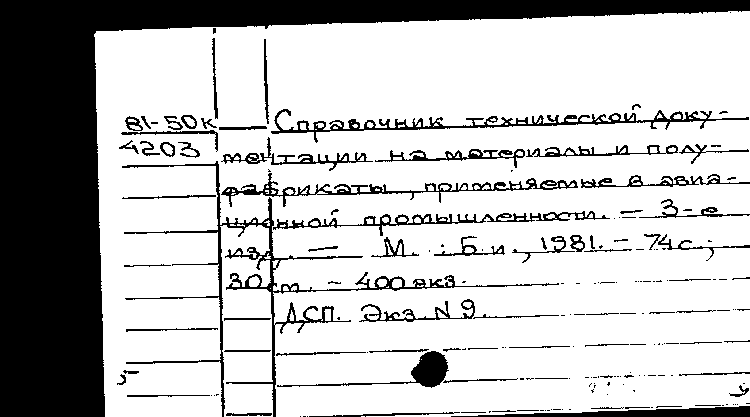 81-50к Справочник технической доку-
4203 ментации на материалы и полу-
фабрикаты, применяемые в авиа-
ционной промышленности. – 3-е
изд. – М. : Б.и., 1981. – 74с.;
30 см. – 400 экз.
ДСП. Экз N 9.